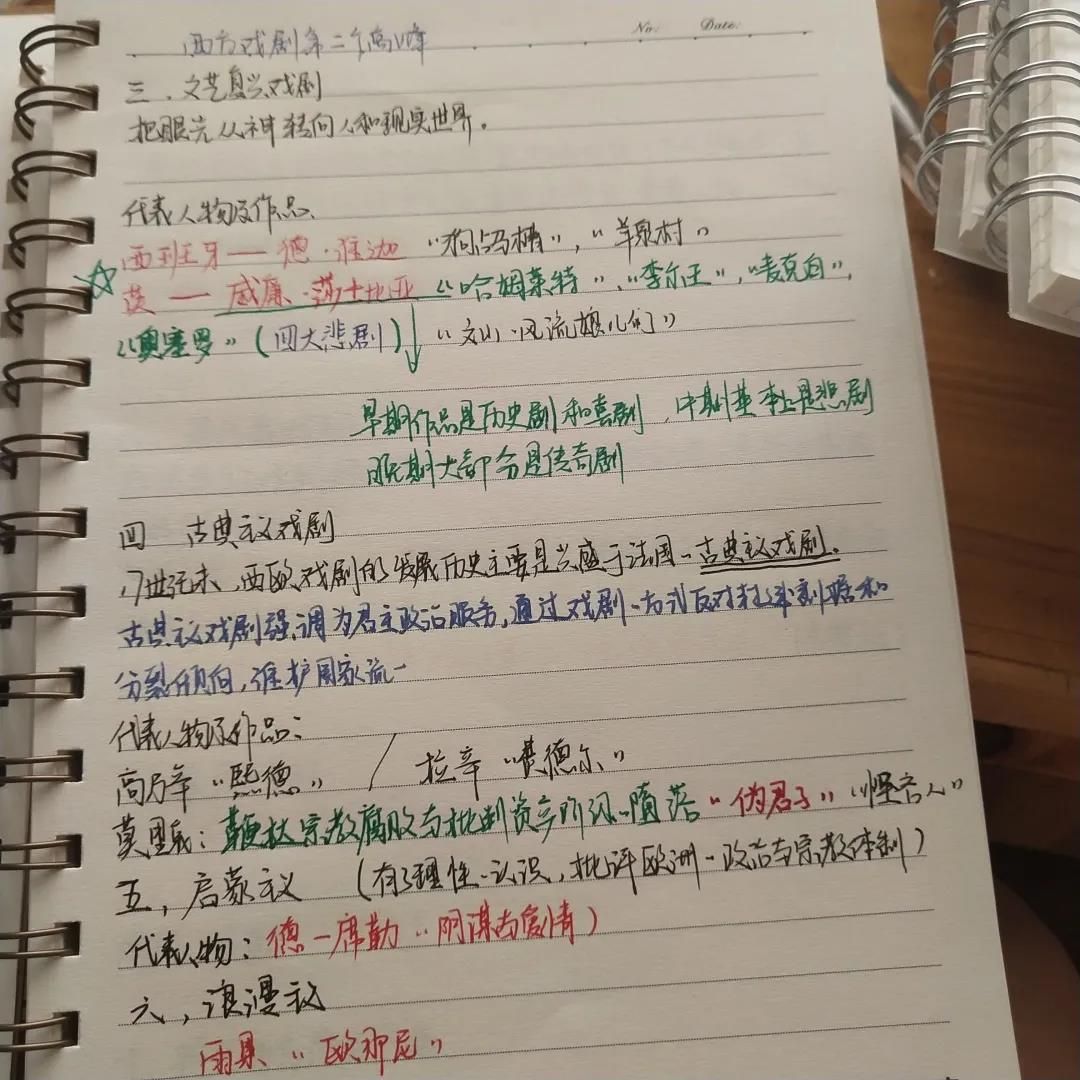 西方戏剧第二个高峰
No: Date:
三、文艺复兴戏剧
把眼光从神转向人和现实世界。
代表人物及作品、
西班牙——德·维迦 “狗占马槽”,“羊泉村”
英——威廉·莎士比亚“哈姆莱特”、“李尔王”,“麦克白”,
“奥塞罗”(四大悲剧) “文山·风流娘儿们”
早期作品是历史剧和喜剧,中期基本上是悲剧
晚期大部分是传奇剧
四 古典主义戏剧
17世纪末、西欧戏剧的发展历史主要是兴盛于法国-古典主义戏剧.
古典主义戏剧强调为君主政治服务,通过戏剧-方式反对封建割据和
分裂倾向,维护国家统一
代表人物及作品:
高乃依“熙德” / 拉辛“费德尔”
莫里哀:鞭挞宗教腐败与批判资产阶级-堕落“伪君子”“悭吝人”
五,启蒙主义 (有了理性-认识,批评欧洲-政治与宗教体制)
代表人物:德-席勒“阴谋与爱情)
六,浪漫主义
雨果“欧那尼”